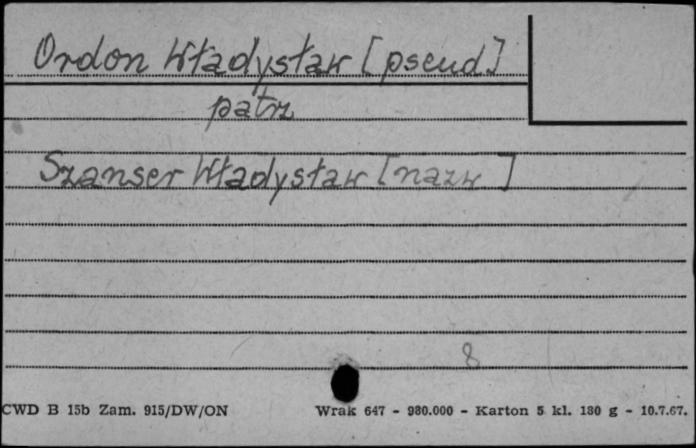 Ordon Władysław [pseud]
patrz
Szanser Władysław [nazw ]
8
CWD B 15b Zam. 915/DW/ON Wrak 647 - 980.000 - Karton 5 kl. 180 g - 10.7.67.